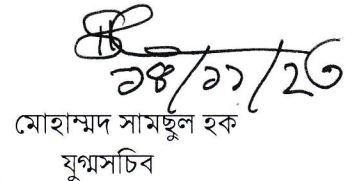 ১৪/১১/২৩
মোহাম্মদ সামছুল হক
যুগ্মসচিব